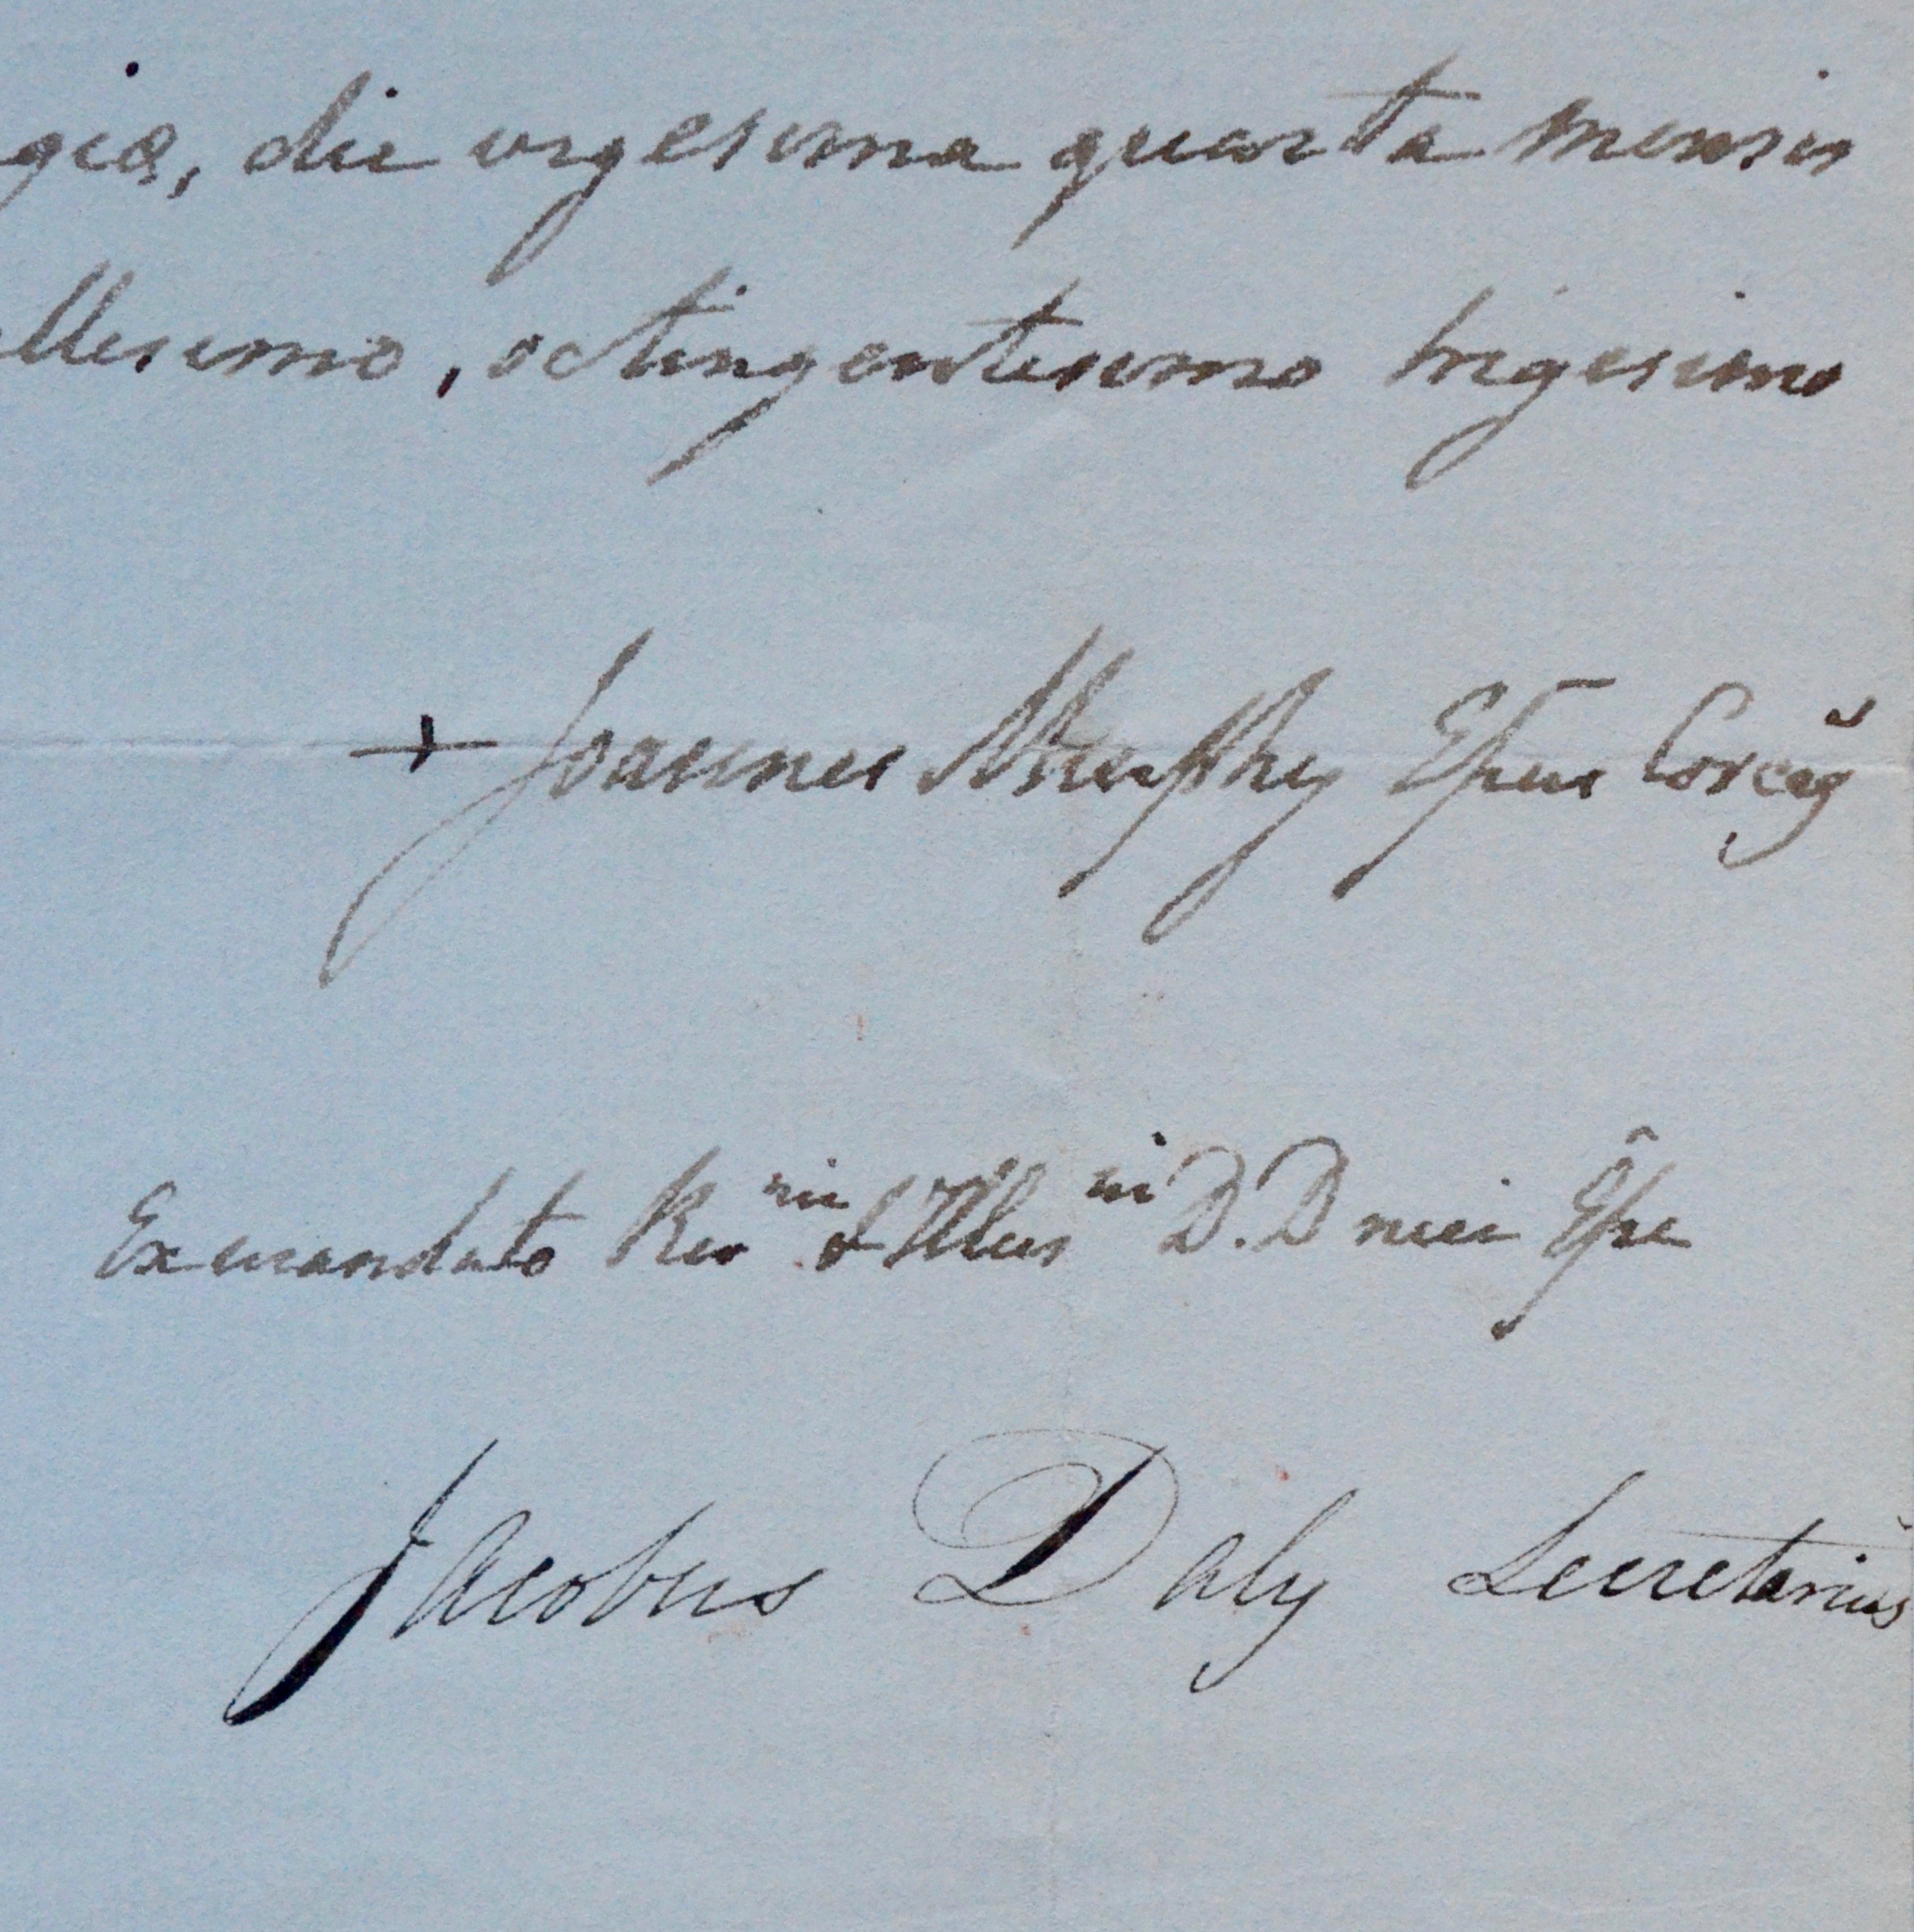 gia, die vigesima quarta mensis
llesimo, octingentesimo trigesimo
+ Joannes Murphy Ep̄us Corcag̃
Ex mandato Rev mi & Illus mi D. D mei Ep̂i
Jacobus Daly Secretarius